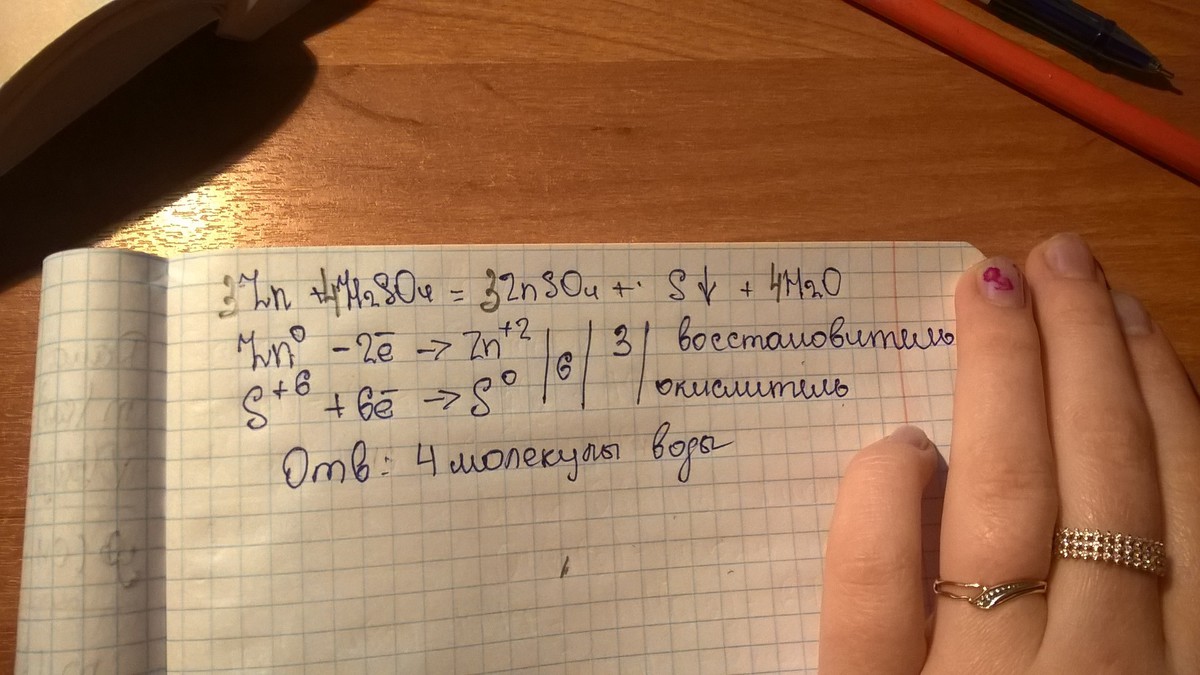 3Zn + 4H2SO4 = 3ZnSO4 + S↓ + 4H2O
Zn⁰ - 2ē → Zn⁺² | 6 | 3 | восстановитель
S⁺⁶ + 6ē → S⁰ | | | окислитель
Отв: 4 молекулы воды